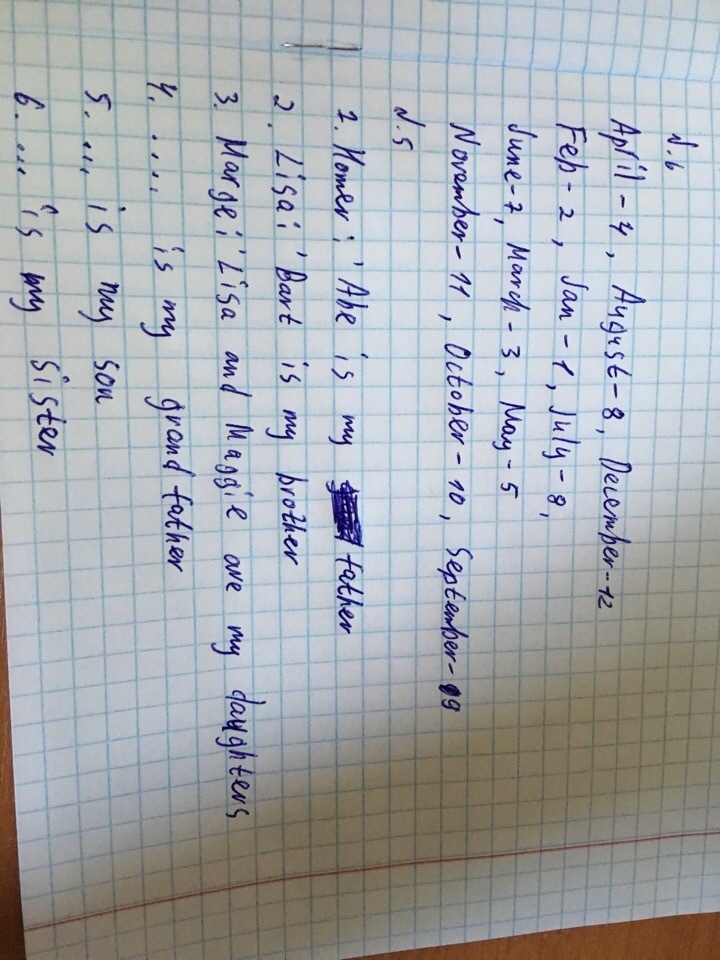 N.6
April - 4, August - 8, December - 12
Feb - 2, Jan - 1, July - 8,
June - 7, March - 3, May - 5
November - 11, October - 10, September - 09
N.5
1. Homer: 'Abe is my father
2. Lisa: 'Bart is my brother
3. Marge: 'Lisa and Maggie are my daughters
4. .... is my grand father
5. ... is my son
6. ... is my sister